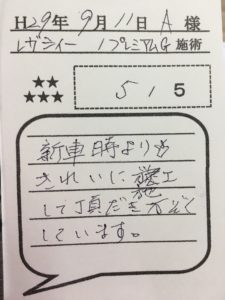 H29年9月11日 A 様
レガシィー プレミアムG 施術
★★
★★★
5/5
新車時よりも
きれいに施工
して頂だき万ぞく
しています。